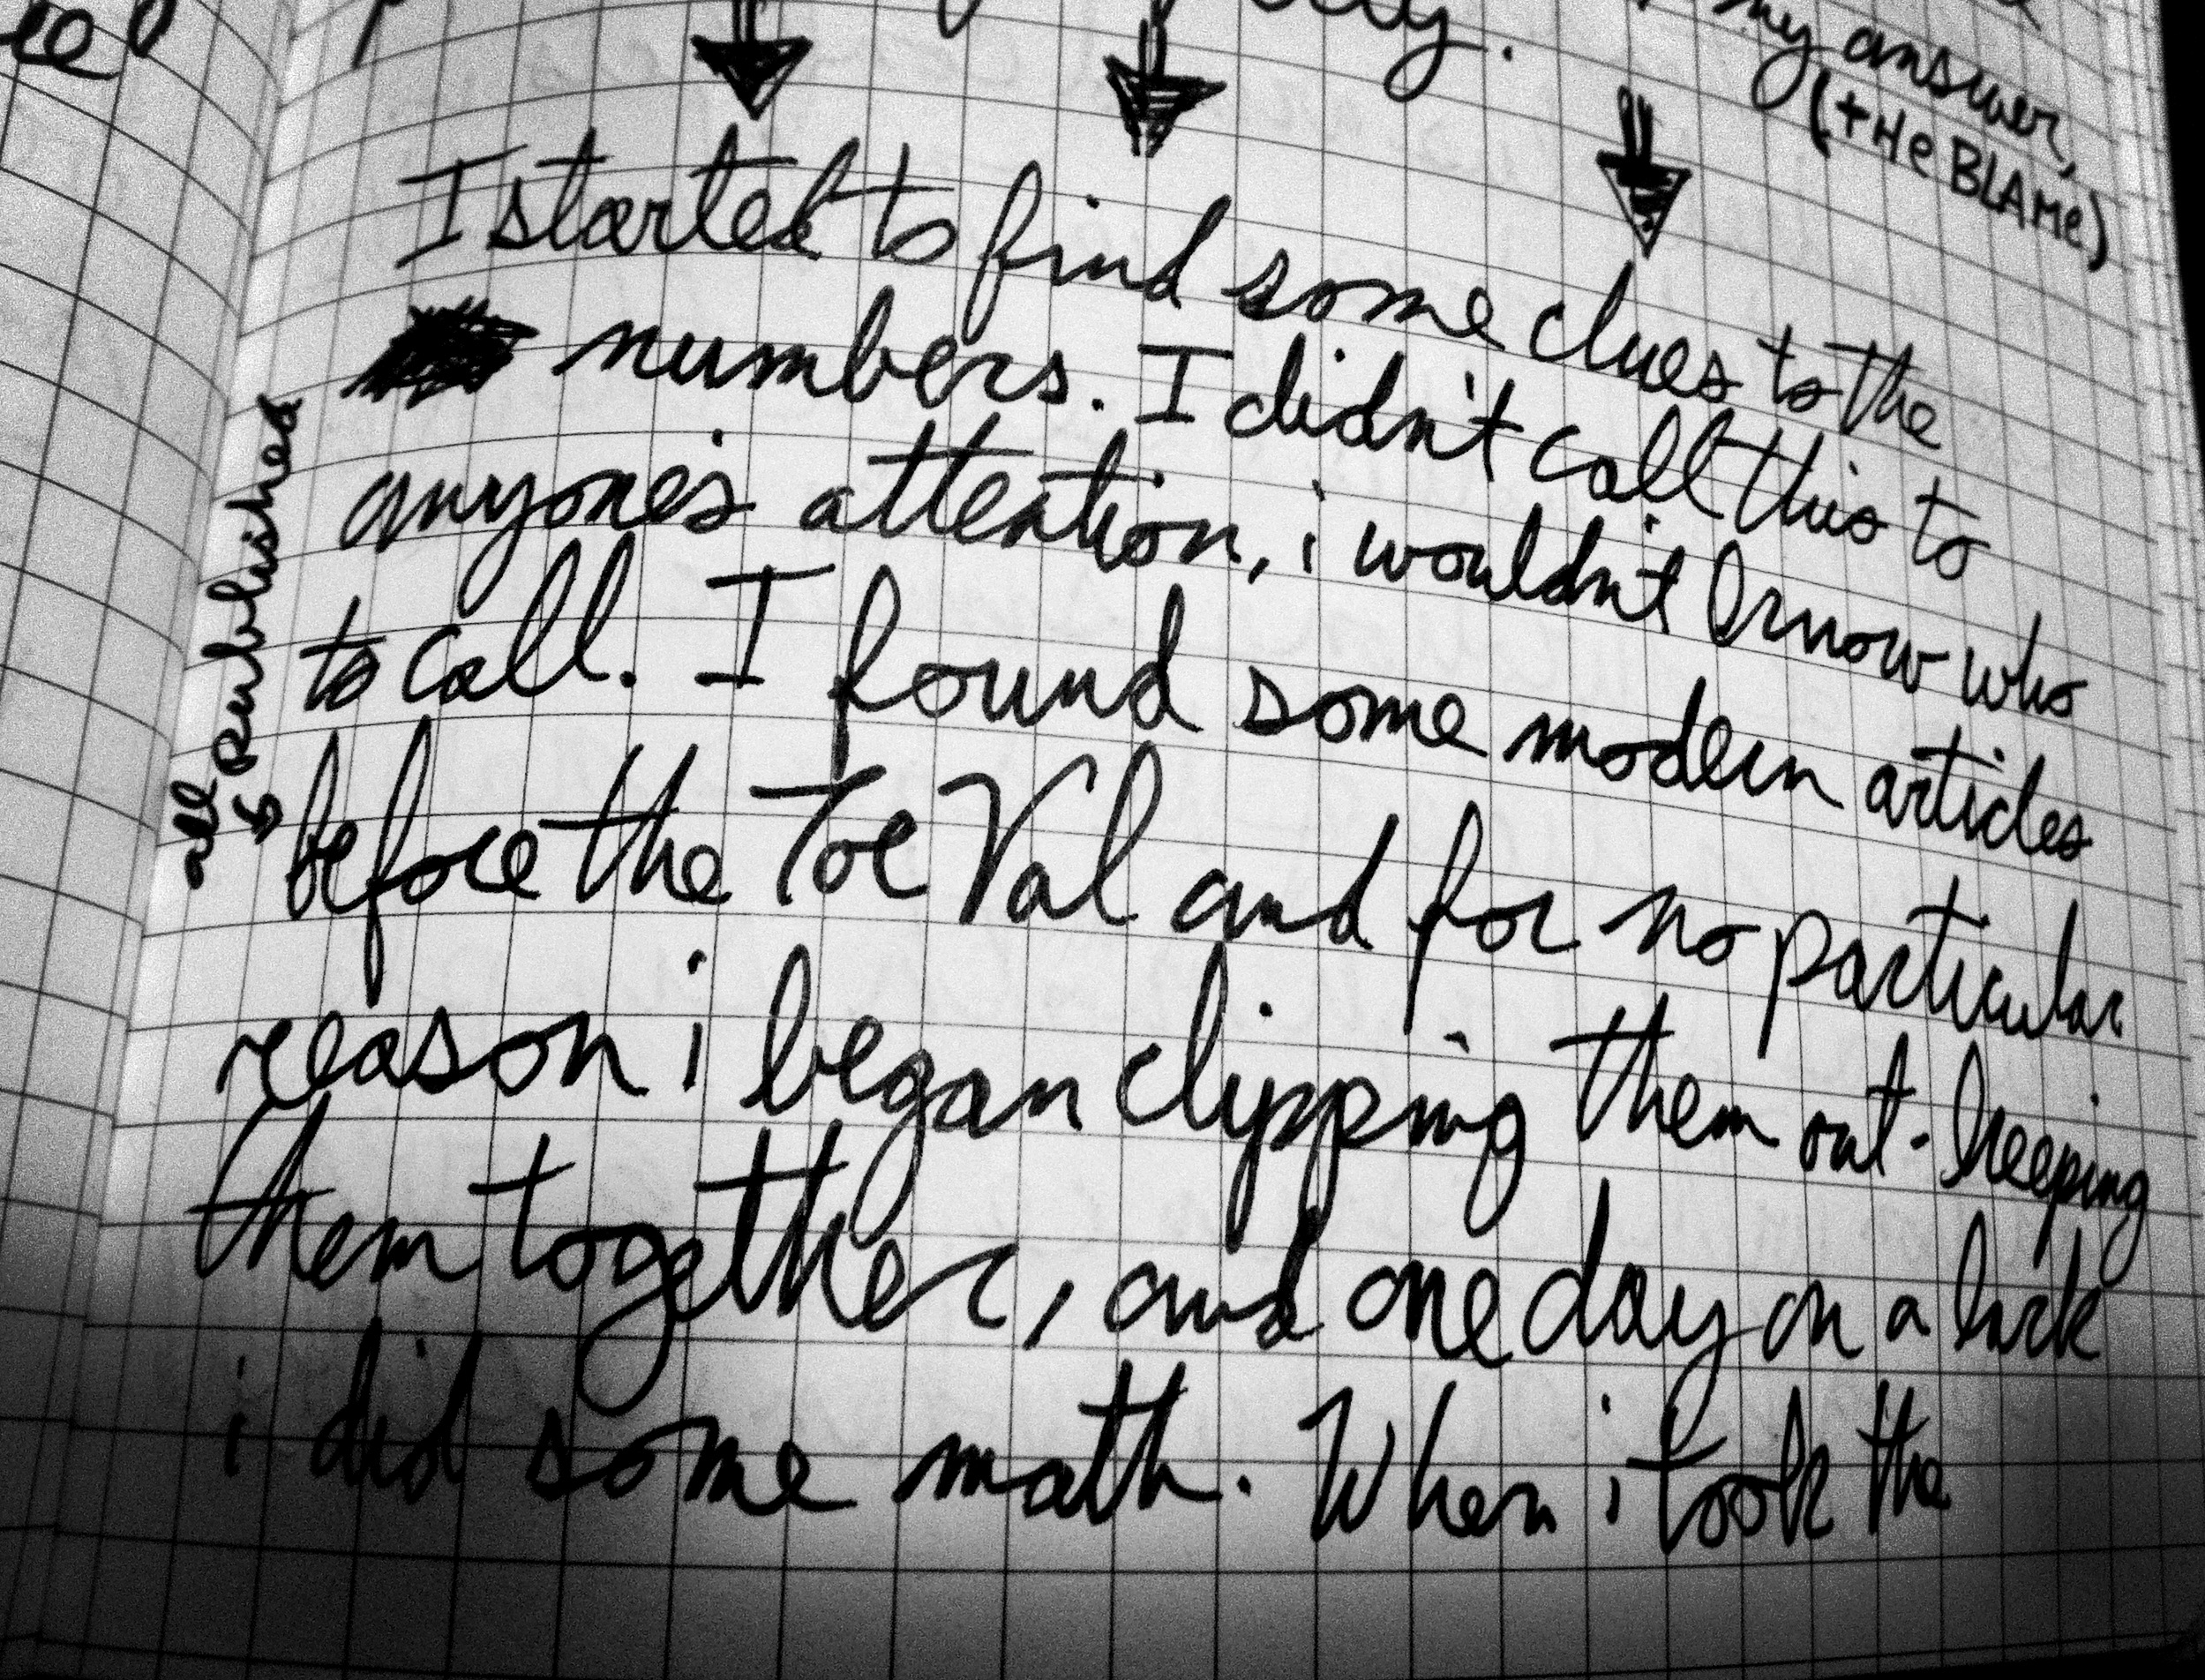 my answer,
(tHe BLAMe)
I started to find some clues to the
numbers. I didn't call this to
anyone's attention, i wouldn't know who
to call. I found some modern articles
all published
before the Toe Val and for no particular
reason i began clipping them out - keeping
them together, and one day on a lark
i did some math. When i took the